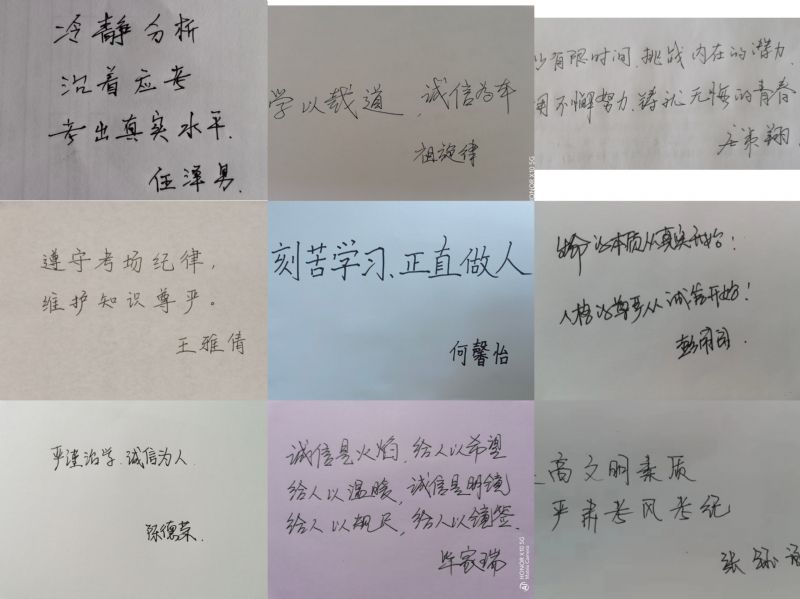 冷静分析
沉着应考
考出真实水平.
任泽男.
学以载道,诚信为本
祖旋律
HONOR X10 5G
有限时间.挑战内在的潜力.
用不懈努力.铸就无悔的青春
翔.
遵守考场纪律,
维护知识尊严。
王雅倩
刻苦学习、正直做人
何馨怡
生命的本质从真实开始!
人格的尊严从诚信开始!
严谨治学.诚信为人.
德荣.
诚信是火焰.给人以希望
给人以温暖,诚信是明镜
给人以规尺,给人以镜鉴.
毕家瑞
HONOR X10 5G
Matrix Camera
高文明素质
严肃考风考纪
张